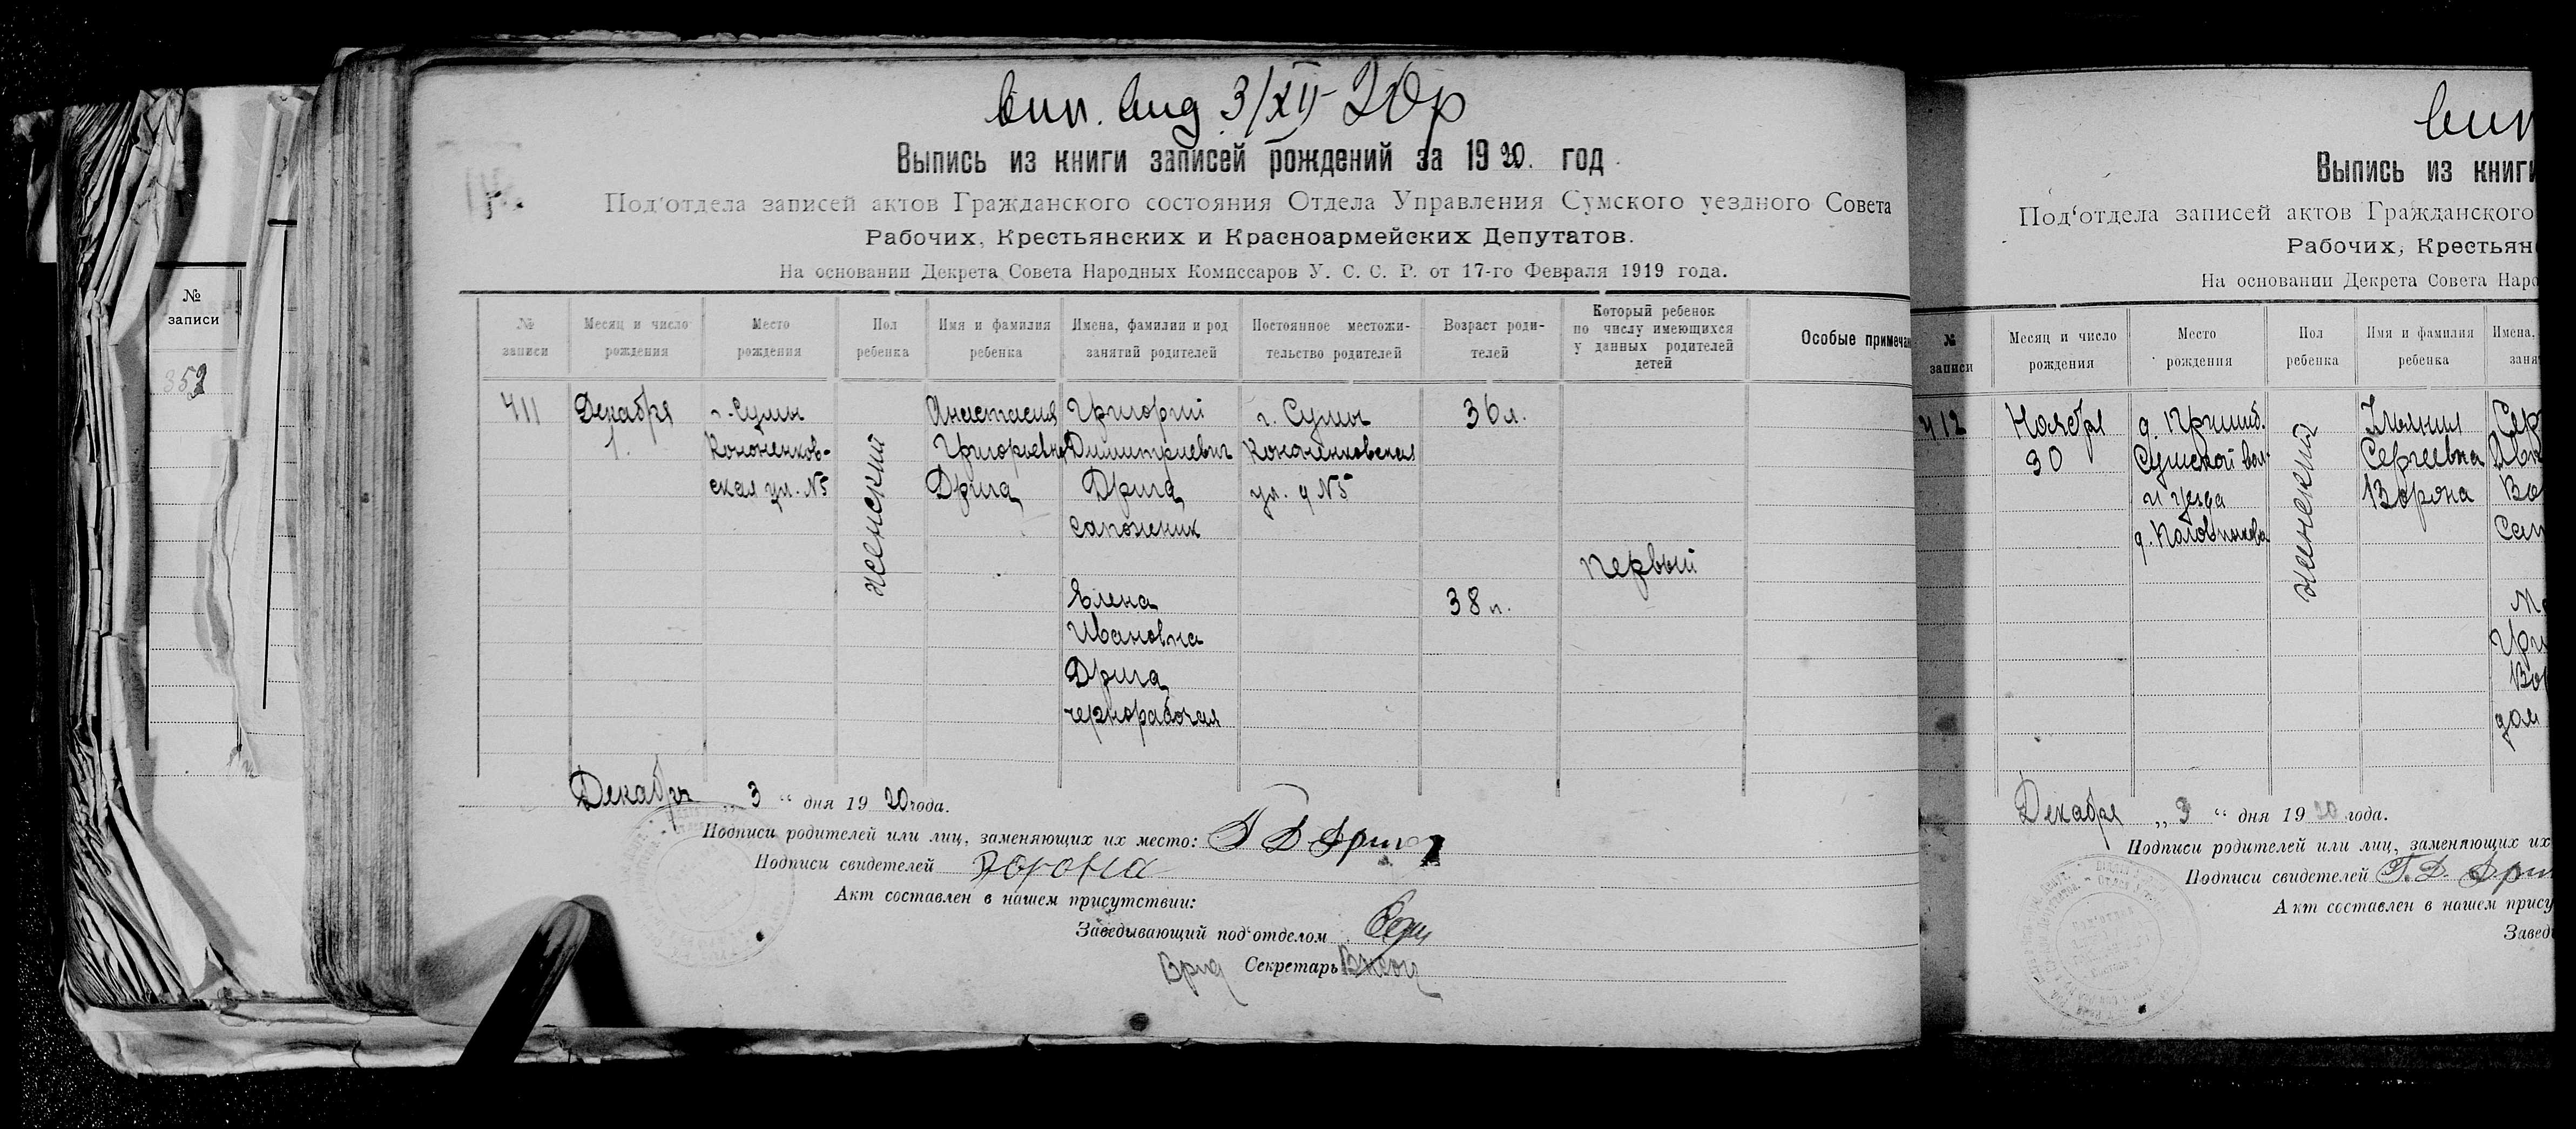 №
записи
352
вип. вид 3/XII 20р
Выпись из книги записей рождений за 1920. год
Под'отдела записей актов Гражданского состояния Отдела Управления Сумского уездного Совета
Рабочих, Крестьянских и Красноармейских Депутатов.
На основании Декрета Совета Народных Комиссаров У. С. С. Р. от 17-го Февраля 1919 года.
№
записи
Месяц и число
рождения
Место
рождения
Пол
ребенка
Имя и фамилия
ребенка
Имена, фамилии и род
занятий родителей
Постоянное местожи-
тельство родителей
Возраст роди-
телей
Который ребенок
по числу имеющихся
у данных родителей
детей
Особые примечан
411
Декабря
1.
г. Сумы
Кононенков-
ская ул. № 5
женский
Анастасия
Григорьевна
Дрига
Григорий
Димитриевич
Дрига
сапожник
Елена
Ивановна
Дрига
чернорабочая
г. Сумы
Кононенковская
ул. д № 5
36 л.
38 л.
первый
Декабря „ 3 “ дня 1920 года.
Подписи родителей или лиц, заменяющих их место: Г Д Дрига
Подписи свидетелей Ворона
Акт составлен в нашем присутствии:
Заведывающий под'отделом
Врид Секретарь
вип
Выпись из книги
Под'отдела записей актов Гражданского
Рабочих, Крестьян
На основании Декрета Совета Наро
№
записи
Месяц и число
рождения
Место
рождения
Пол
ребенка
Имя и фамилия
ребенка
Имена,
заня
412
Ноября
30
Сумской вол.
и уезда
женский
Сергеевна
Ворона
Сер
Ива
Во
Сап
Ма
Гри
Во
дом
Декабря „ 3 “ дня 1920 года.
Подписи родителей или лиц, заменяющих их
Подписи свидетелей Г. Д. Дри
Акт составлен в нашем прису
Завед